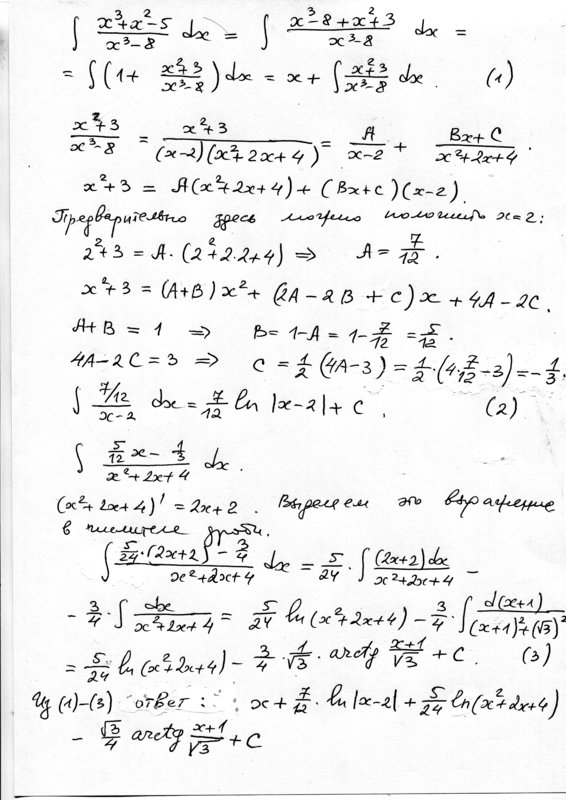 ∫ (x³+x²-5)/(x³-8) dx = ∫ (x³-8+x²+3)/(x³-8) dx =
= ∫(1+ (x²+3)/(x³-8)) dx = x + ∫ (x²+3)/(x³-8) dx. (1)
(x²+3)/(x³-8) = (x²+3)/((x-2)(x²+2x+4)) = A/(x-2) + (Bx+C)/(x²+2x+4).
x²+3 = A(x²+2x+4)+(Bx+C)(x-2).
Предварительно здесь можно положить x=2:
2²+3 = A·(2²+2·2+4) ⇒ A = 7/12.
x²+3 = (A+B)x²+(2A-2B+C)x+4A-2C.
A+B = 1 ⇒ B = 1-A = 1-7/12 = 5/12.
4A-2C=3 ⇒ C = 1/2 (4A-3) = 1/2·(4·7/12-3) = -1/3.
∫ (7/12)/(x-2) dx = 7/12 ln |x-2| + C. (2)
∫ (5/12 x - 1/3)/(x²+2x+4) dx.
(x²+2x+4)' = 2x+2. Выделяем это выражение
в числителе дроби.
∫ (5/24·(2x+2) - 3/4)/(x²+2x+4) dx = 5/24 · ∫ (2x+2)dx/(x²+2x+4) -
- 3/4 · ∫ dx/(x²+2x+4) = 5/24 ln(x²+2x+4) - 3/4 · ∫ d(x+1)/((x+1)²+(√3)²)
= 5/24 ln(x²+2x+4) - 3/4 · 1/√3 · arctg (x+1)/√3 + C. (3)
Из (1)-(3) ответ: x + 7/12 · ln |x-2| + 5/24 ln(x²+2x+4)
- √3/4 arctg (x+1)/√3 + C